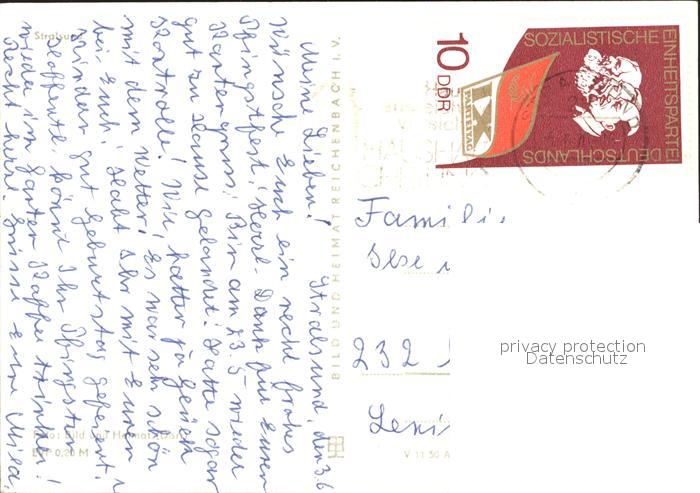 Stralsund, den 3.6
Meine Lieben!
Wünsche Euch ein recht frohes
Pfingstfest! Herzl. Dank für Euren
Kartengruss! Bin am 23.5. wieder
gut zu Hause gelandet! Hatte sogar
Kontrolle! Wir hatten ja Glück
mit dem Wetter! Es war sehr schön
bei Euch! Habt Ihr mit Euren
Kindern gut Geburtstag gefeiert?
Hoffentl. könnt Ihr Pfingsten
wieder im Garten Kaffee trinken!
Recht herzl. Grüsse Eure
Stralsun
Foto: Bild und Heimat
EVP 0,20 M
BILD UND HEIMAT REICHENBACH I. V.
V 11 50 A
SOZIALISTISCHE EINHEITSPARTEI DEUTSCHLANDS
IX
PARTEITAG
10 DDR
Famili
Ilse
232
privacy protection
Datenschutz